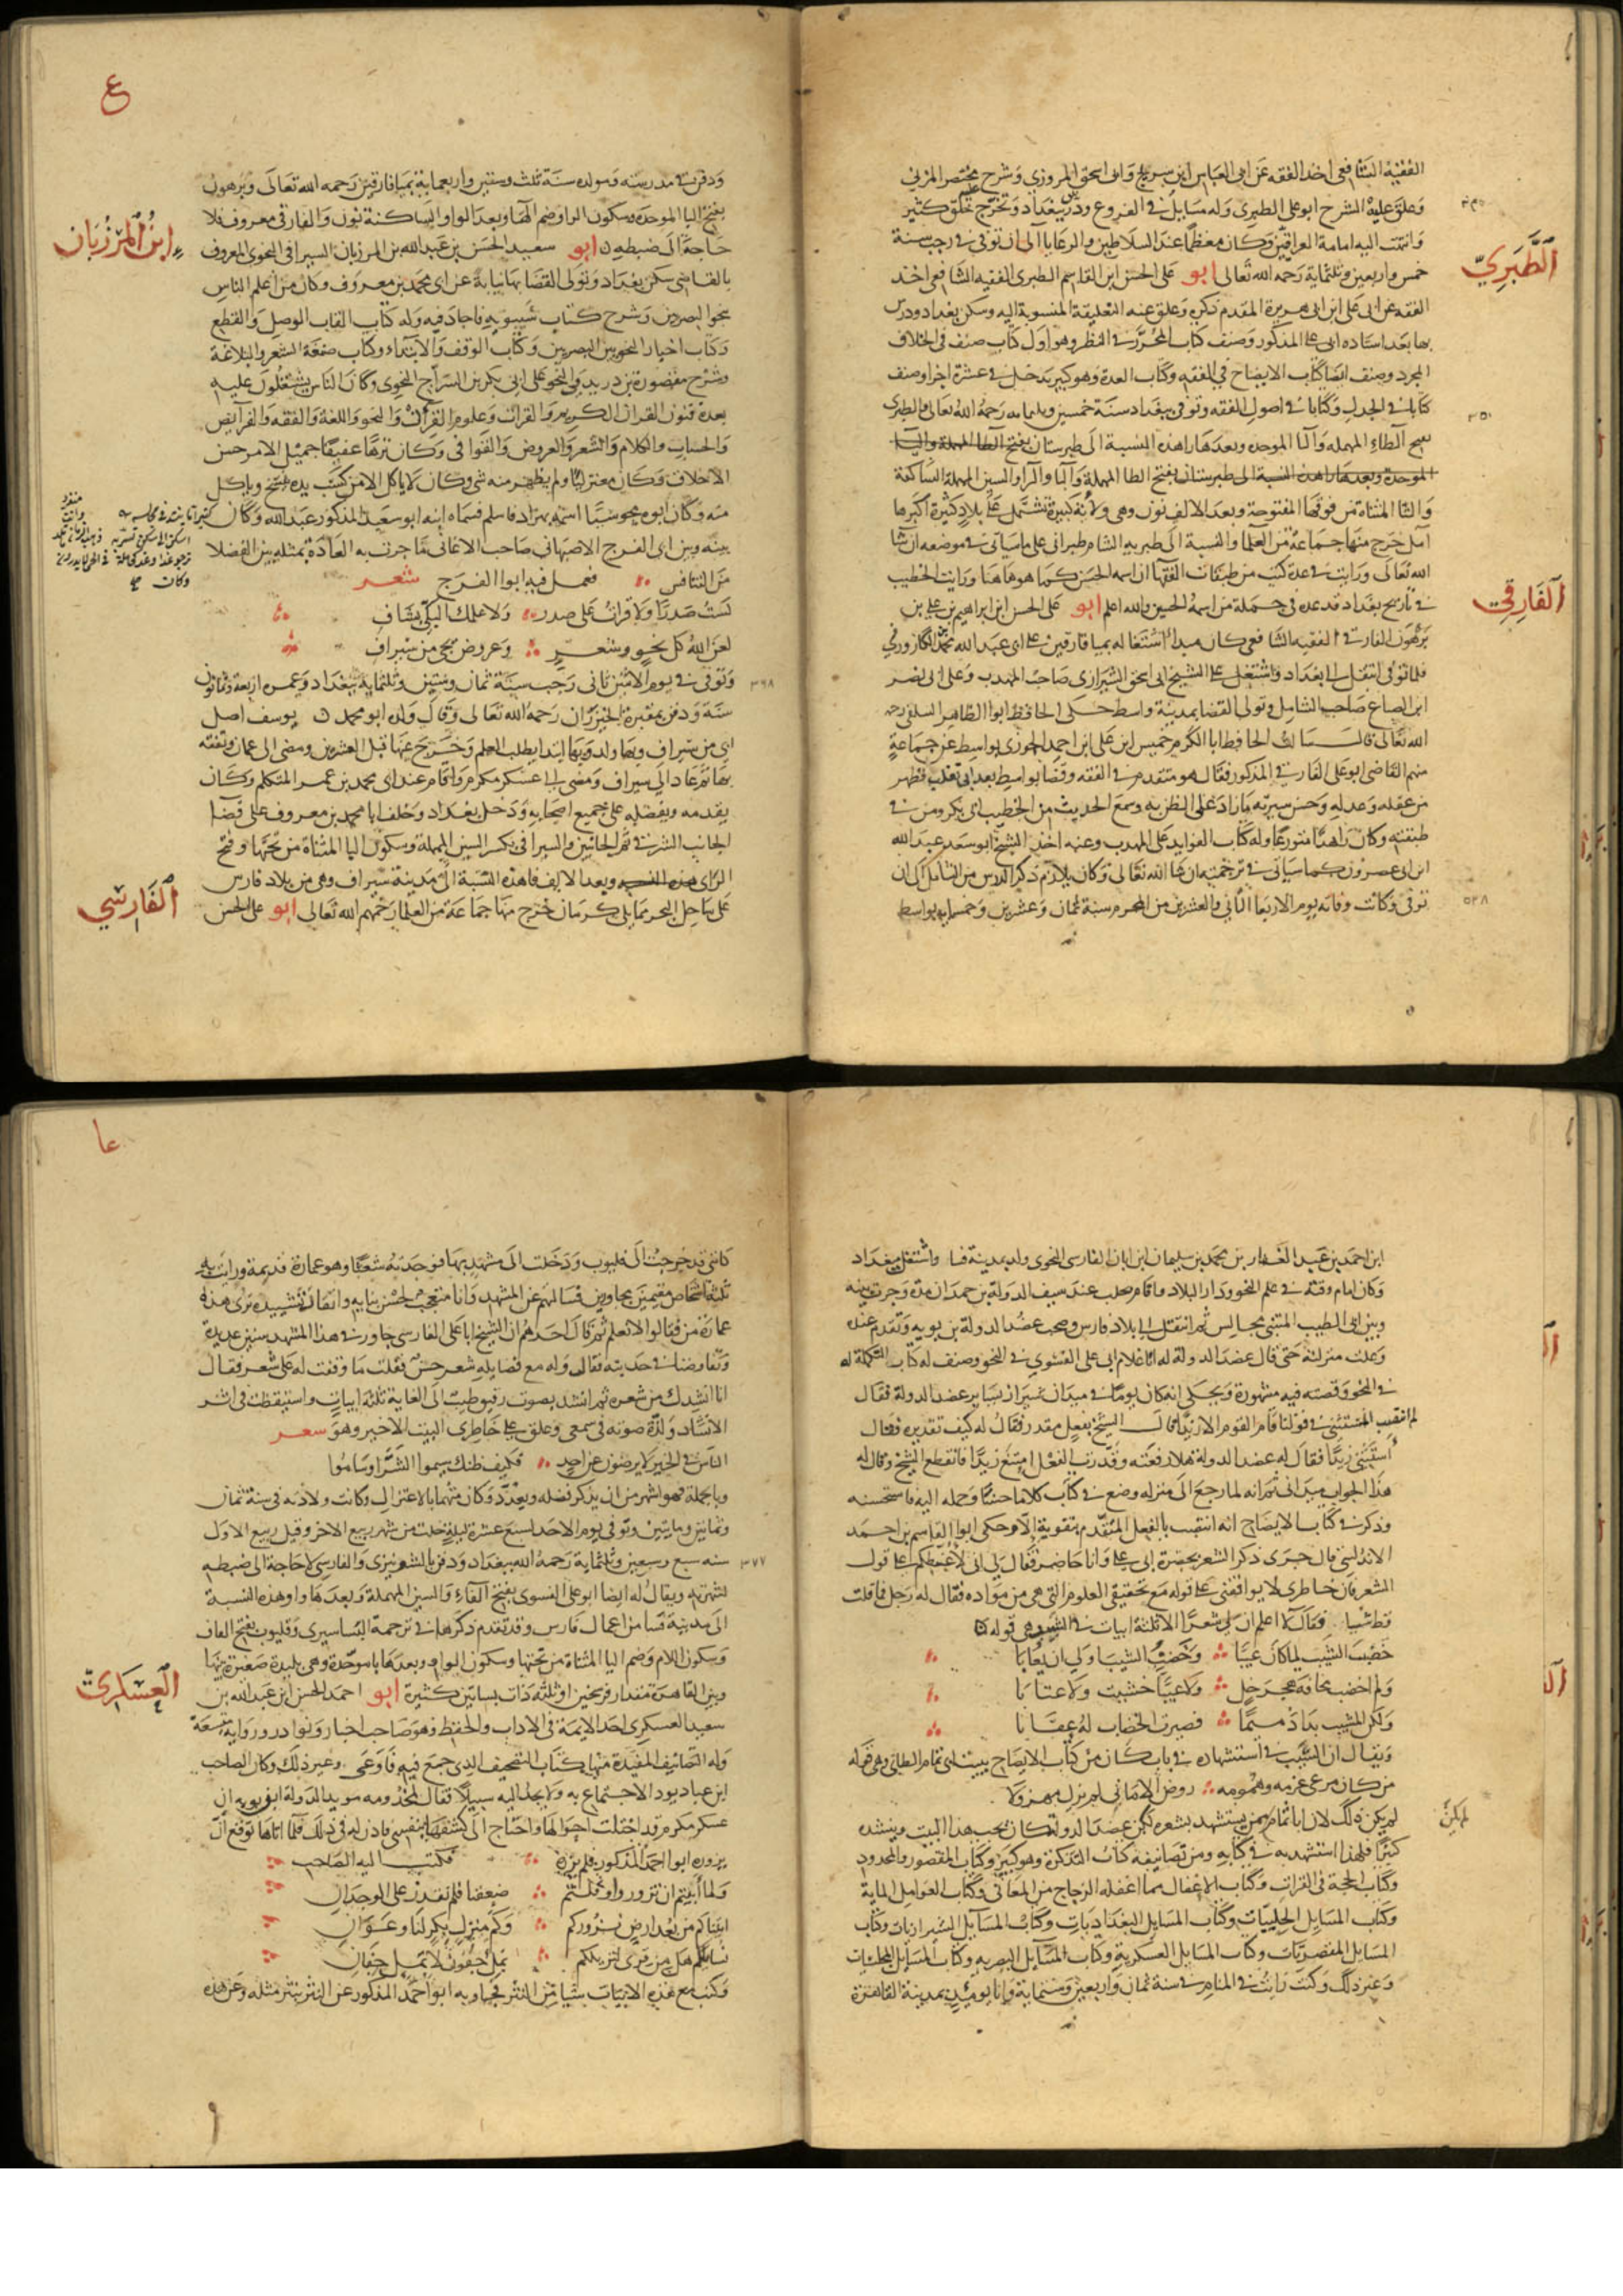 الفقيه الشافعي اخذ الفقه عن ابى العباس ابن سريج وابى اسحق المروزي وشرح مختصر المزني
وعلق عليه الشرح ابو على الطبرى وله مسايل في الفروع ودرس ببغداد وتخرج عليه خلق كثير
وانتهت اليه امامة العراقيين وكان معظما عند السلاطين والرعايا الى ان توفى في رجب سنة
خمس واربعين وثلثماية رحمه الله تعالى ابو على الحسن ابن القاسم الطبرى الفقيه الشافعى اخذ
الطبري
الفقه عن ابى على ابن ابى هريرة المقدم ذكره وعلق عنه التعليقة المنسوبة اليه وسكن بغداد ودرس
بها بعد استاذه ابى على المذكور وصنف كتاب المحرر في النظر وهو اول كتاب صنف فى الخلاف
المجرد وصنف ايضا كتاب الايضاح في الفقه وكتاب العدة وهو كبير يدخل في عشرة اجزا وصنف
كتابا في الجدل وكتابا في اصول الفقه وتوفى ببغداد سنة خمسين وثلثمايه رحمه الله تعالى والطبرى
٣٥٠
بفتح الطاء المهمله والبا الموحده وبعدها را هذه النسبة الى طبرستان بفتح الطا المهملة والبا
الموحدة وبعدها را هذه النسبة الى طبرستان بفتح الطا المهملة والبا والرا والسين المهملة الساكنة
والتا المثناة من فوقها المفتوحة وبعد الالف نون وهى ولاية كبيرة تشتمل على بلاد كثيرة اكبرها
آمل خرج منها جماعة من العلما والنسبة الى طبريه الشام طبرانى على ما سياتى في موضعه ان شا
الله تعالى ورايت في عدة كتب من طبقات الفقها ان اسمه الحسن كما هو هاهنا ورايت الخطيب
في تاريخ بغداد قد عده فى جملة من اسمه الحسين والله اعلم ابو على الحسن ابن ابراهيم بن على بن
الفارقي
برهون الفارقي الفقيه الشافعى كان مبدا اشتغاله بميافارقين على ابى عبد الله محمد الكازرونى
فلما توفى انتقل الى بغداد واشتغل على الشيخ ابى اسحق الشيرازى صاحب المهذب وعلى ابى نصر
ابن الصباغ صاحب الشامل وتولى القضا بمدينة واسط حكى الحافظ ابو الطاهر السلفى رحمه
الله تعالى قال سالت الحافظ ابا الكرم خميس ابن على ابن احمد الحوزى بواسط عن جماعة
منهم القاضى ابو على الفارقي المذكور فقال هو متقدم في الفقه وقضا بواسط بعد ابى تغلب فظهر
من عقله وعدله وحسن سيرته ما زاد على الظن به وسمع الحديث من الخطيب ابى بكر ومن في
طبقته وكان زاهدا متورعا وله كتاب الفوايد على المهذب وعنه اخذ الشيخ ابو سعد عبد الله
ابن ابى عصرون كما سياتى في ترجمته ان شا الله تعالى وكان يلازم ذكر الدرس من الشامل الى ان
توفى وكانت وفاته يوم الاربعا الثانى والعشرين من المحرم سنة ثمان وعشرين وخمسمايه بواسط
٥٢٨
ودفن في مدرسته ومولده سنة ثلث وستين واربعماية بميافارقين رحمه الله تعالى وبرهون
بفتح البا الموحدة وسكون الرا وضم الها وبعد الواو الساكنة نون والفارقى معروف فلا
حاجة الى ضبطه ن ابو سعيد الحسن بن عبد الله بن المرزبان السيرافى النحوى المعروف
ابن المرزبان
بالقاضى سكن بغداد وتولى القضا بها نيابة عن ابى محمد بن معروف وكان من اعلم الناس
بنحو البصريين وشرح كتاب سيبويه فاجاد فيه وله كتاب الفات الوصل والقطع
وكتاب اخبار النحويين البصريين وكتاب الوقف والابتداء وكتاب صنعة الشعر والبلاغة
وشرح مقصورة بن دريد والنحو على ابى بكر بن السراج النحوى وكان الناس يشتغلون عليه
بعدة فنون القران الكريم والقراات وعلوم القرآن والنحو واللغة والفقه والفرايض
والحساب والكلام والشعر والعروض والقوافى وكان نزها عفيفا جميل الامر حسن
الاخلاق وكان معتزليا ولم يظهر منه شى وكان لا ياكل الا من كسب يده ينسخ وياكل
منه وكان ابوه مجوسيا اسمه بهزاد فاسلم فسماه ابنه ابو سعيد المذكور عبد الله وكان
بينه وبين ابى الفرج الاصبهانى صاحب الاغانى ما جرت به العادة بمثله بين الفضلا
من التنافس فعمل فيه ابوا الفرج شعر
لست صدرا ولا قرات على صدر ولا علمك البكى بشاف
لعن الله كل نحو وشعر وعروض يجى من سيراف
وتوفى في يوم الاثنين ثانى رجب سنة ثمان وستين وثلثماية ببغداد وعمره اربعة وثمانون
٣٦٨
سنة ودفن بمقبرة الخيزران رحمه الله تعالى وقال ولده ابو محمد ن يوسف اصل
ابى من سيراف وبها ولد وبها ابتدا بطلب العلم وخرج عنها قبل العشرين ومضى الى عمان وتفقه
بها ثم عاد الى سيراف ومضى الى عسكر مكرم واقام عند ابى محمد بن عمر المتكلم وكان
يقدمه ويفضله على جميع اصحابه ودخل بغداد وخلف ابا محمد بن معروف على قضا
الجانب الشرقي ثم الجانبين والسيرافى بكسر السين المهملة وسكون اليا المثناة من تحتها وفتح
الراى وبعد الالف فا هذه النسبة الى مدينة سيراف وهى من بلاد فارس
على ساحل البحر مما يلى كرمان خرج منها جماعة من العلما رحمهم الله تعالى ابو على الحسن
الفارسي
ابن احمد بن عبد الغفار بن محمد بن سليمان ابن ابان الفارسى النحوى ولد بمدينة فسا واشتغل ببغداد
وكان امام وقته في علم النحو ودار البلاد واقام بحلب عند سيف الدولة بن حمدان مدة وجرت بينه
وبين ابى الطيب المتنبى مجالس ثم انتقل الى بلاد فارس وصحب عضد الدولة بن بويه وتقدم عنده
وعلت منزلته حتى قال عضد الدولة له انا غلام ابى على الفسوي في النحو وصنف له كتاب التكملة له
في النحو وقصته فيه مشهورة ويحكى انه كان يوما في ميدان شيراز يساير عضد الدولة فقال
لم انتصب المستثنى في قولنا قام القوم الا زيدا فقال الشيخ بفعل مقدر فقال له كيف تقديره فقال
استثنى زيدا فقال له عضد الدولة هلا رفعته وقدرت الفعل امتنع زيد فانقطع الشيخ وقال له
هذا الجواب ميدانى ثم انه لما رجع الى منزله وضع في ذلك كلاما حسنا وحمله اليه فاستحسنه
وذكر في كتاب الايضاح انه انتصب بالفعل المتقدم بتقوية الا وحكى ابوا القاسم بن احمد
الاندلسى قال جرى ذكر الشعر بحضرة ابى على وانا حاضر فقال لى انى لاغبطكم على قول
الشعر فان خاطرى لا يوافقنى على قوله مع تحقيقى العلوم التى هى من مواده فقال له رجل فما قلت
قط شيا فقال ما اعلم ان لى شعرا الا ثلثة ابيات في الشيب وهى قوله
خضبت الشيب لما كان عيبا وخضب الشيب اولى ان يعابا
ولم اخضب مخافة هجر خل ولا عيبا خشيت ولا عتابا
ولكن المشيب بدا ذميما فصيرت الخضاب له عقابا
ويقال ان السبب في استشهاده في باب كان من كتاب الايضاح ببيت ابى تمام الطائى وهى قوله
من كان مرعى عزمه وهمومه روض الامانى لم يزل مهزولا
لم يكن ذلك لان ابا تمام ممن يستشهد بشعره لكن عضد الدولة كان يحب هذا البيت وينشده
كثيرا فلهذا استشهد به في كتابه ومن تصانيفه كتاب التذكرة وهو كبير وكتاب المقصور والممدود
وكتاب الحجة فى القرات وكتاب الاغفال مما اغفله الزجاج من المعانى وكتاب العوامل الماية
وكتاب المسايل الحلبيات وكتاب المسايل البغداديات وكتاب المسايل الشيرازيات وكتاب
المسايل القصريات وكتاب المسايل العسكرية وكتاب المسايل البصريه وكتاب المسايل المجلسيات
وغير ذلك وكنت رايت في المنام في سنة ثمان واربعين وستماية وانا يوميذ بمدينة القاهرة
كاننى قد خرجت الى قليوب ودخلت الى مشهد بها فوجدته شعثا وهو عمارة قديمة ورايت به
ثلثة اشخاص مقيمين مجاورين فسالتهم عن المشهد وانا متعجب لحسن بنايه واتقان تشييده ترى هذه
عمارة من فقالوا لا نعلم ثم قال احدهم ان الشيخ ابا على الفارسى جاور في هذا المشهد سنين عديدة
وتفاوضنا في حديثه فقال وله مع فضايله شعر حسن فقلت ما وقفت له على شعر فقال
انا انشدك من شعره ثم انشد بصوت رقيق طيب الى الغاية ثلثة ابيات واستيقظت فى اثر
الانشاد ولذة صوته فى سمعى وعلق على خاطرى البيت الاخير وهو سعر
الناس في الخير لا يرضون عن احد فكيف ظنك سيموا الشر او ساموا
وبالجملة فهو اشهر من ان يذكر فضله ويعدد وكان متهما بالاعتزال وكانت ولادته فى سنة ثمان
وثمانين ومايتين وتوفى يوم الاحد لسبع عشرة ليلة خلت من شهر ربيع الاخر وقيل ربيع الاول
سنه سبع وسبعين وثلثماية رحمه الله ببغداد ودفن بالشونيزى والفارسى لا حاجة الى ضبطه
٣٧٧
لشهرته ويقال له ايضا ابو على الفسوى بفتح الفاء والسين المهملة وبعدها واو هذه النسبة
الى مدينة فسا من اعمال فارس وقد تقدم ذكرها في ترجمة البساسيرى وقليوب بفتح القاف
وسكون اللام وضم اليا المثناة من تحتها وسكون الواو وبعدها با موحدة وهى بليدة صغيرة بينها
وبين القاهرة مقدار فرسخين او ثلثة ذات بساتين كثيرة ابو احمد الحسن ابن عبد الله بن
العسكري
سعيد العسكرى احد الايمة فى الاداب والحفظ وهو صاحب اخبار ونوادر ورواية متسعة
وله التصانيف المفيدة منها كتاب التصحيف الذى جمع فيه فاوعى وغير ذلك وكان الصاحب
ابن عباد يود الاجتماع به ولا يجد اليه سبيلا فقال لمخدومه مويد الدولة ابن بويه ان
عسكر مكرم قد اختلت احوالها واحتاج الى كشفها بنفسى فاذن له فى ذلك فلما اتاها توقع ان
يزوره ابوا احمد المذكور فلم يزره فكتب اليه الصاحب
ولما ابيتم ان تزوروا وقلتم ضعفنا فلم نقدر على الوخدان
اتيناكم من بعد ارض نزوركم وكم منزل بكر لنا وعوان
نسايلكم هل من قرى لنزيلكم بمل جفون لا بمل جفان
وكتب مع هذه الابيات شيا من النثر فجاوبه ابو احمد المذكور عن النثر بنثر مثله وعن هذه